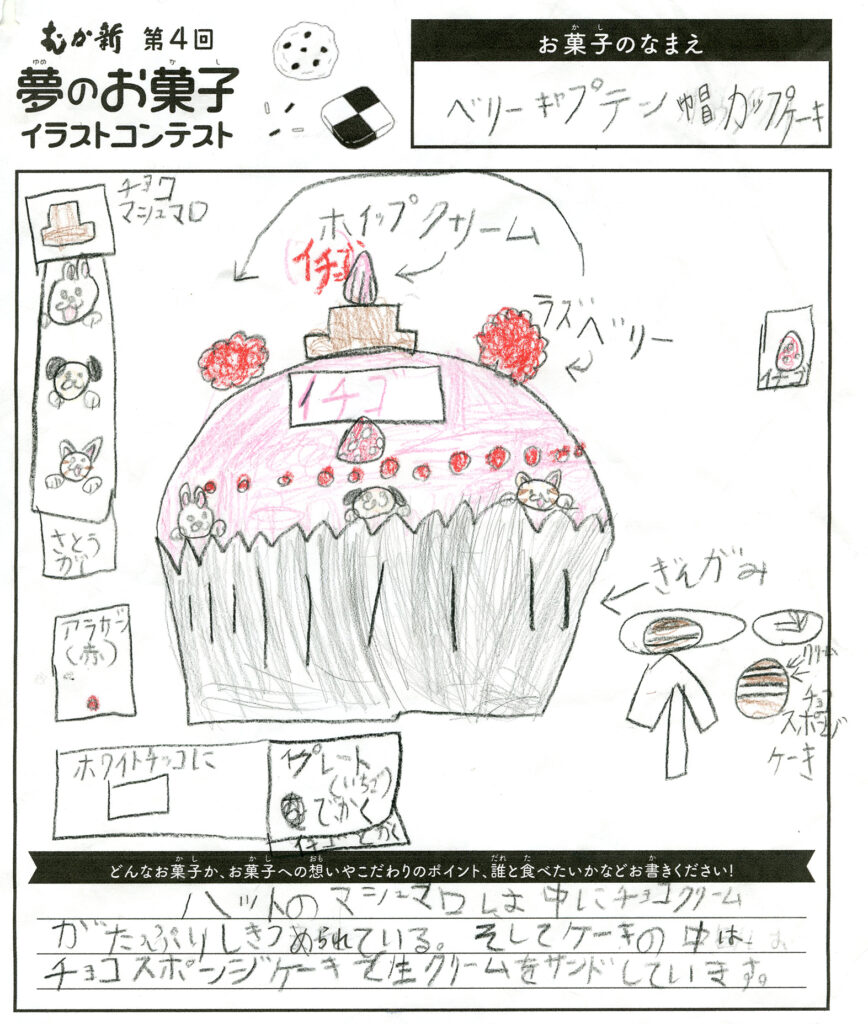 むか新 第4回
夢のお菓子
ゆめ か し
イラストコンテスト
お菓子のなまえ
か し
ベリーキャプテン帽カップケーキ
チョコ
マシュマロ
ホイップクリーム
(イチゴ)
ラズベリー
イチゴ
イチゴ
さとう
がし
ぎんがみ
アラザン
(赤)
クリーム
チョコ
スポンジ
ケーキ
ホワイトチョコに
プレート
(いちご)
でかく
イチゴでかく
どんなお菓子か、お菓子への想いやこだわりのポイント、誰と食べたいかなどお書きください!
か し か し おも だれ た か
ハットのマシュマロは中にチョコクリーム
がたっぷりしきつめられている。そしてケーキの中は
チョコスポンジケーキで生クリームをサンドしています。